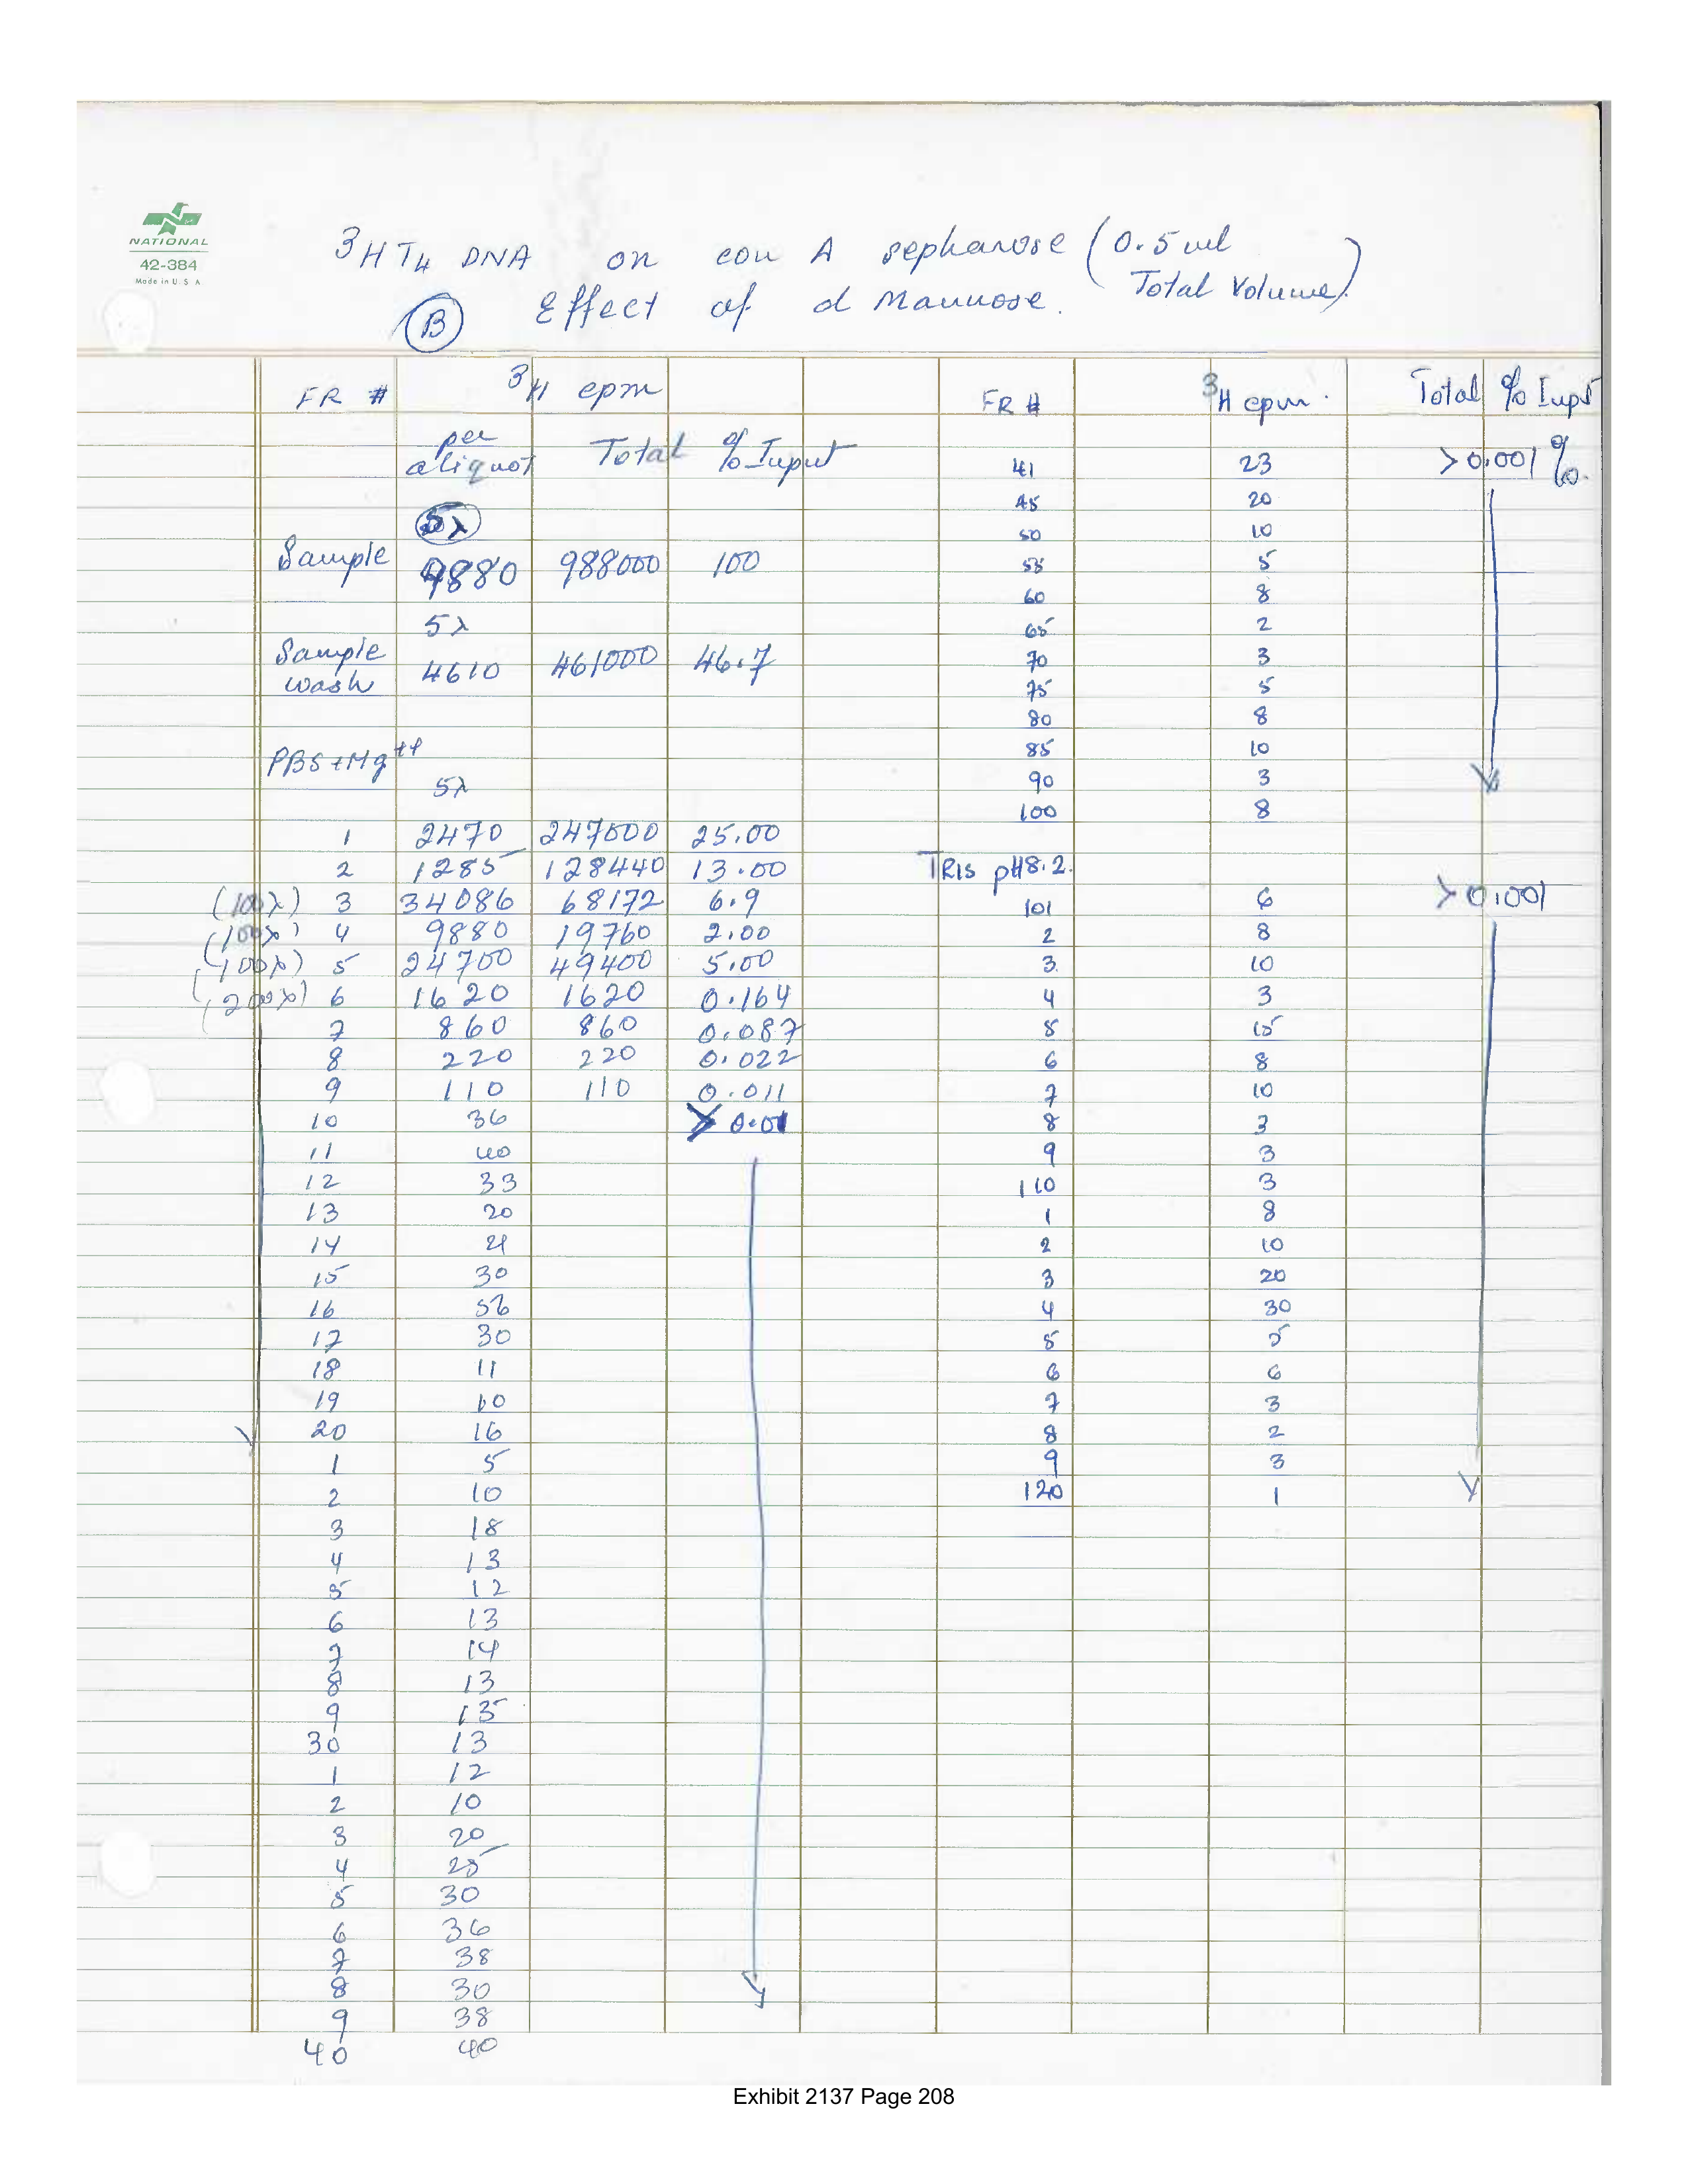 NATIONAL
42-384
Made in U.S.A
3H T4 DNA on con A sepharose (0.5 ml
Total Volume)
(B) Effect of d Mannose.
FR # 3H cpm
per aliquot Total % Input
5λ
Sample 9880 988000 100
5λ
Sample wash 4610 461000 46.7
PBS + Mg++
5λ
1 2470 247000 25.00
2 1285 128440 13.00
(100λ) 3 34086 68172 6.9
(100λ) 4 9880 19760 2.00
(100λ) 5 24700 49400 5.00
(200λ) 6 1620 1620 0.164
7 860 860 0.087
8 220 220 0.022
9 110 110 0.011
10 36 > 0.01
11 40
12 33
13 20
14 21
15 30
16 56
17 30
18 11
19 10
20 16
1 5
2 10
3 18
4 13
5 12
6 13
7 14
8 13
9 15
30 13
1 12
2 10
3 20
4 25
5 30
6 36
7 38
8 30
9 38
40 40
FR # 3H cpm. Total % Input
41 23 > 0.001 %.
45 20
50 10
55 5
60 8
65 2
70 3
75 5
80 8
85 10
90 3
100 8
TRIS pH8.2.
101 6 > 0.001
2 8
3. 10
4 3
5 15
6 8
7 10
8 3
9 3
110 3
1 8
2 10
3 20
4 30
5 5
6 6
7 3
8 2
9 3
120 1
Exhibit 2137 Page 208